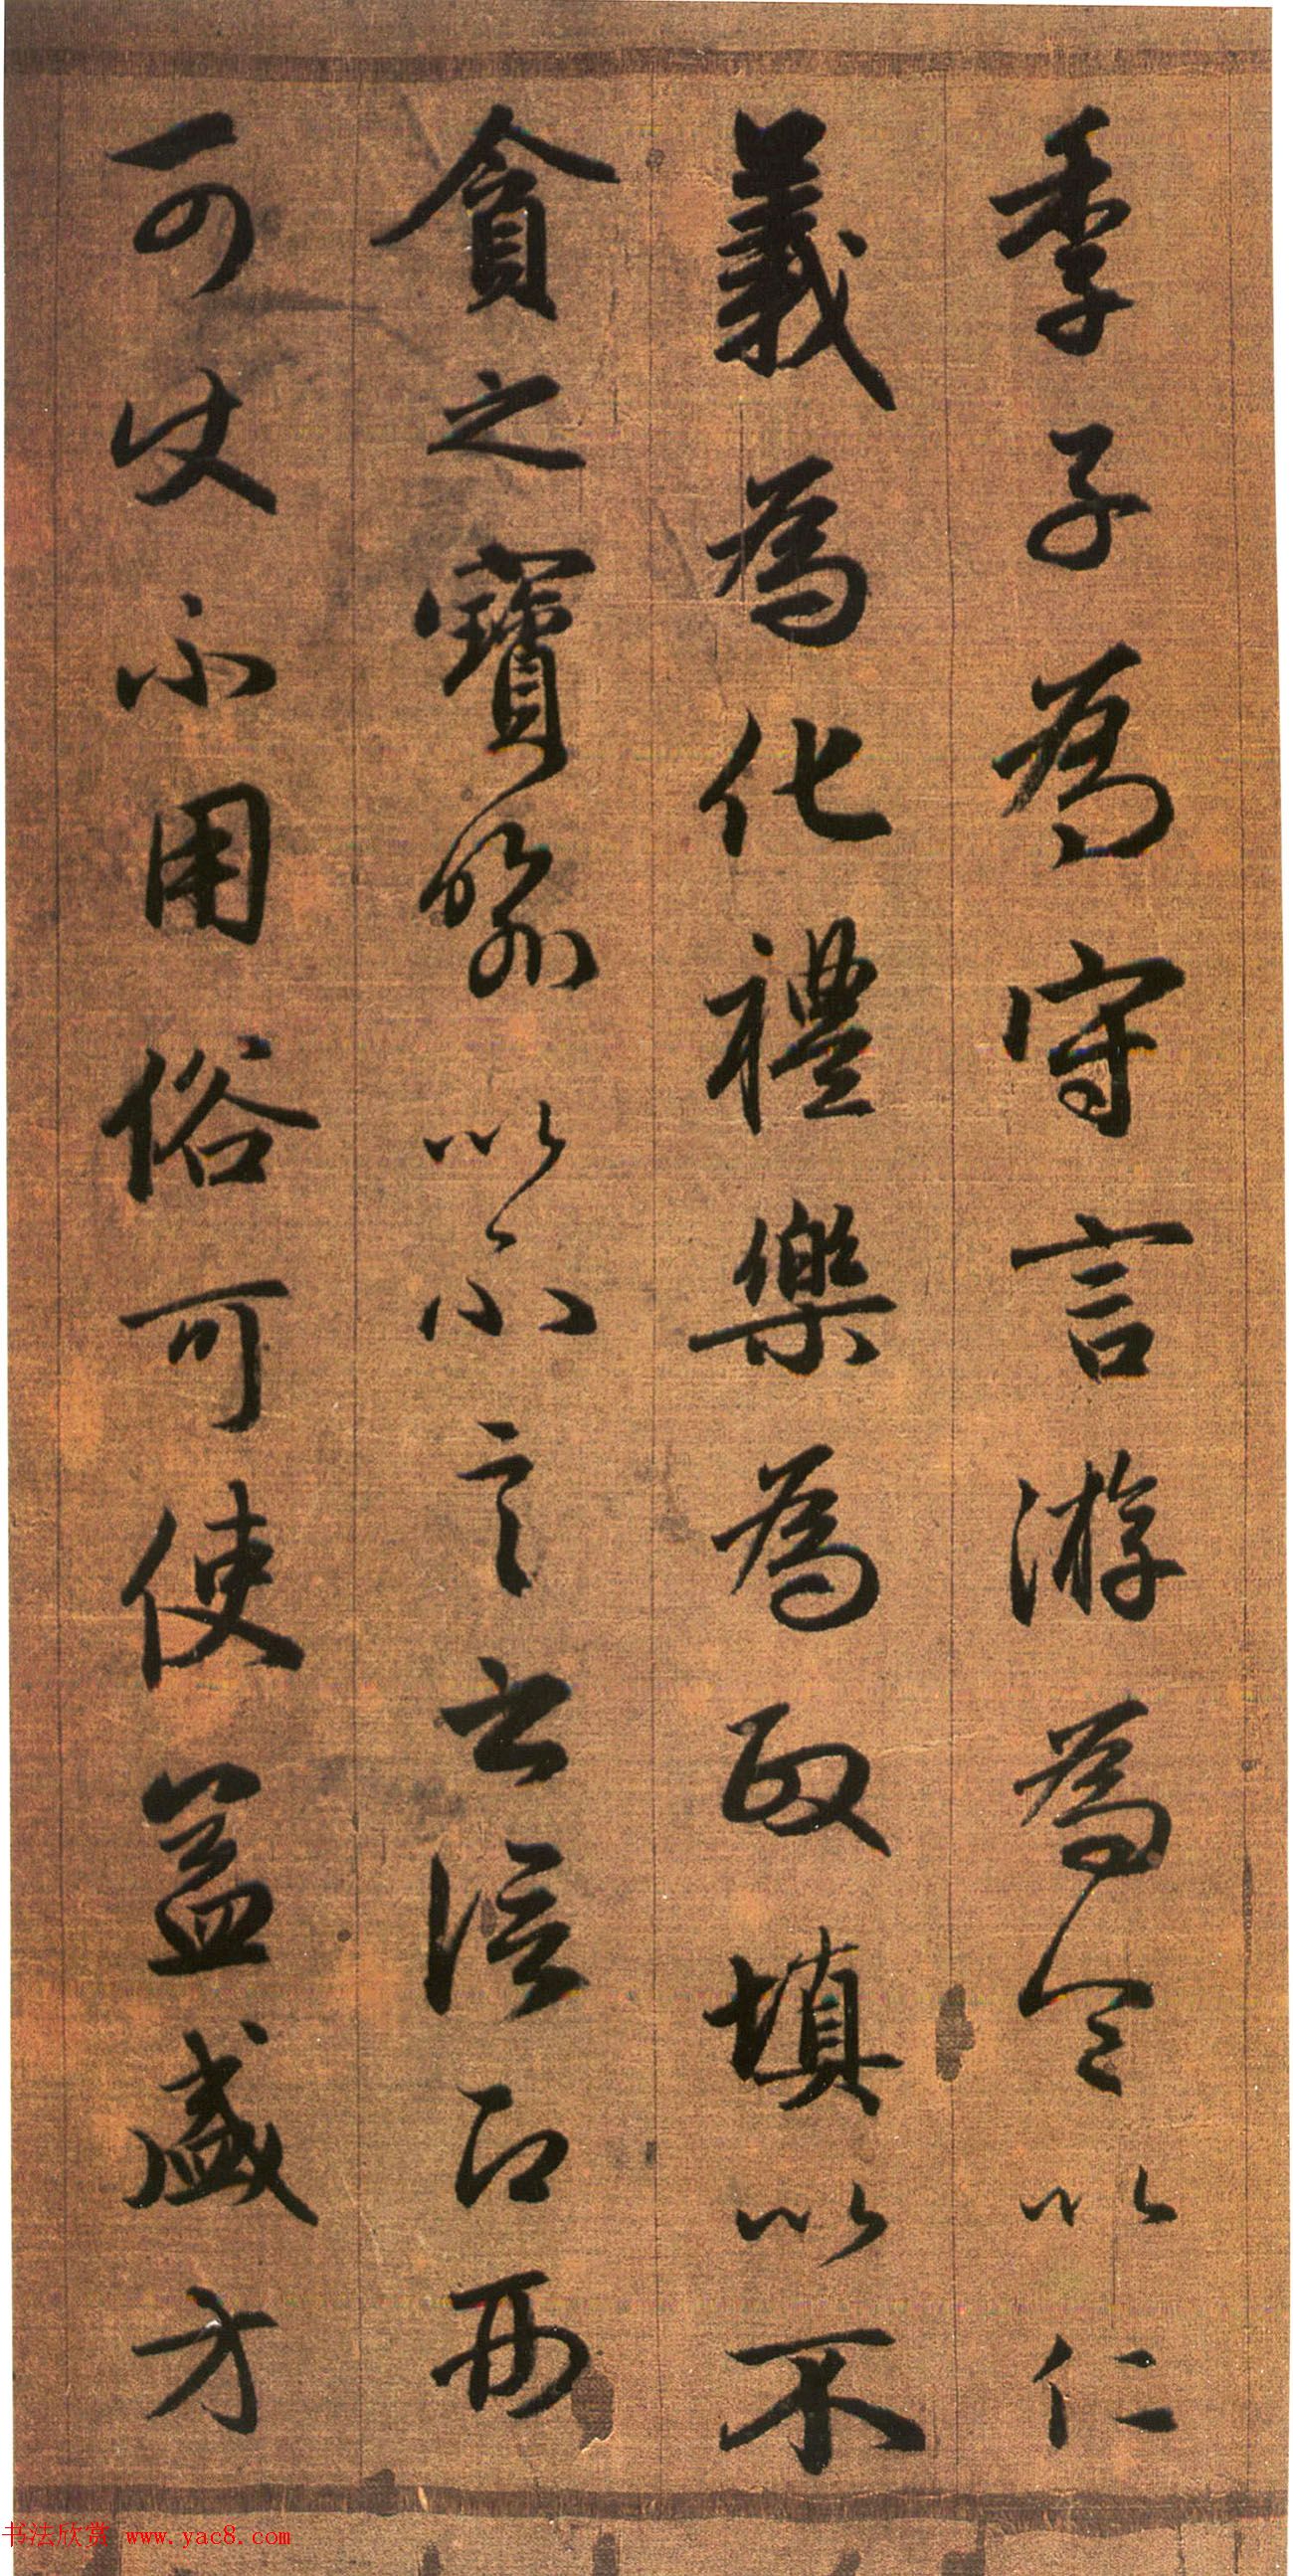 季子為守言游為令以仁
義為化禮樂為政填以不
貪之寶 以不言之信
可使不用俗可使益盛方
书法欣赏 www.yac8.com